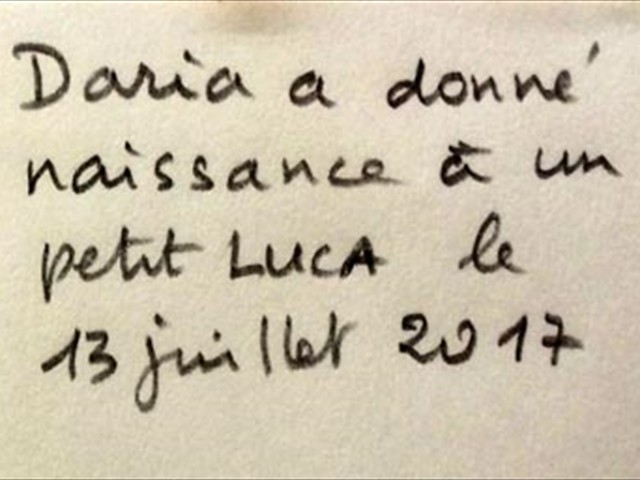 Daria a donné
naissance à un
petit LUCA le
13 juillet 2017